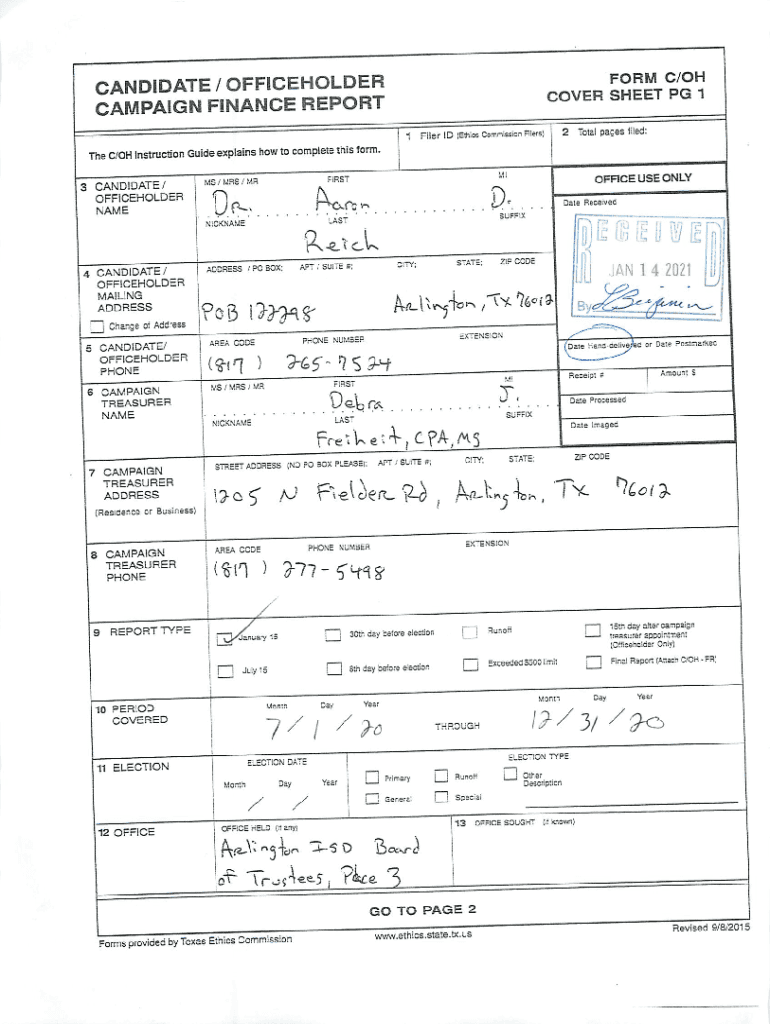 CANDIDATE / OFFICEHOLDER
CAMPAIGN FINANCE REPORT
FORM C/OH
COVER SHEET PG 1
The C/OH Instruction Guide explains how to complete this form.
1 Filer ID (Ethics Commission Filers)
2 Total pages filed:
3 CANDIDATE / OFFICEHOLDER NAME
MS / MRS / MR FIRST MI
Dr. Aaron D.
NICKNAME LAST SUFFIX
Reich
OFFICE USE ONLY
Date Received
RECEIVED
JAN 14 2021
By
4 CANDIDATE / OFFICEHOLDER MAILING ADDRESS
Change of Address
ADDRESS / PO BOX; APT / SUITE #; CITY; STATE; ZIP CODE
POB 122298 Arlington, TX 76012
5 CANDIDATE/ OFFICEHOLDER PHONE
AREA CODE PHONE NUMBER EXTENSION
(817) 265-7524
Date Hand-delivered or Date Postmarked
Receipt # Amount $
Date Processed
Date Imaged
6 CAMPAIGN TREASURER NAME
MS / MRS / MR FIRST MI
Debra J.
NICKNAME LAST SUFFIX
Freiheit, CPA, MS
7 CAMPAIGN TREASURER ADDRESS
(Residence or Business)
STREET ADDRESS (NO PO BOX PLEASE); APT / SUITE #; CITY; STATE; ZIP CODE
1205 N Fielder Rd, Arlington, TX 76012
8 CAMPAIGN TREASURER PHONE
AREA CODE PHONE NUMBER EXTENSION
(817) 277-5498
9 REPORT TYPE
January 15 30th day before election Runoff 15th day after campaign treasurer appointment (Officeholder Only)
July 15 8th day before election Exceeded $500 limit Final Report (Attach C/OH - FR)
10 PERIOD COVERED
Month Day Year Month Day Year
7/1/20 THROUGH 12/31/20
11 ELECTION
ELECTION DATE ELECTION TYPE
Month Day Year
/ /
Primary Runoff Other Description
General Special
12 OFFICE
OFFICE HELD (if any)
Arlington ISD Board
of Trustees, Place 3
13 OFFICE SOUGHT (if known)
GO TO PAGE 2
Forms provided by Texas Ethics Commission www.ethics.state.tx.us Revised 9/8/2015